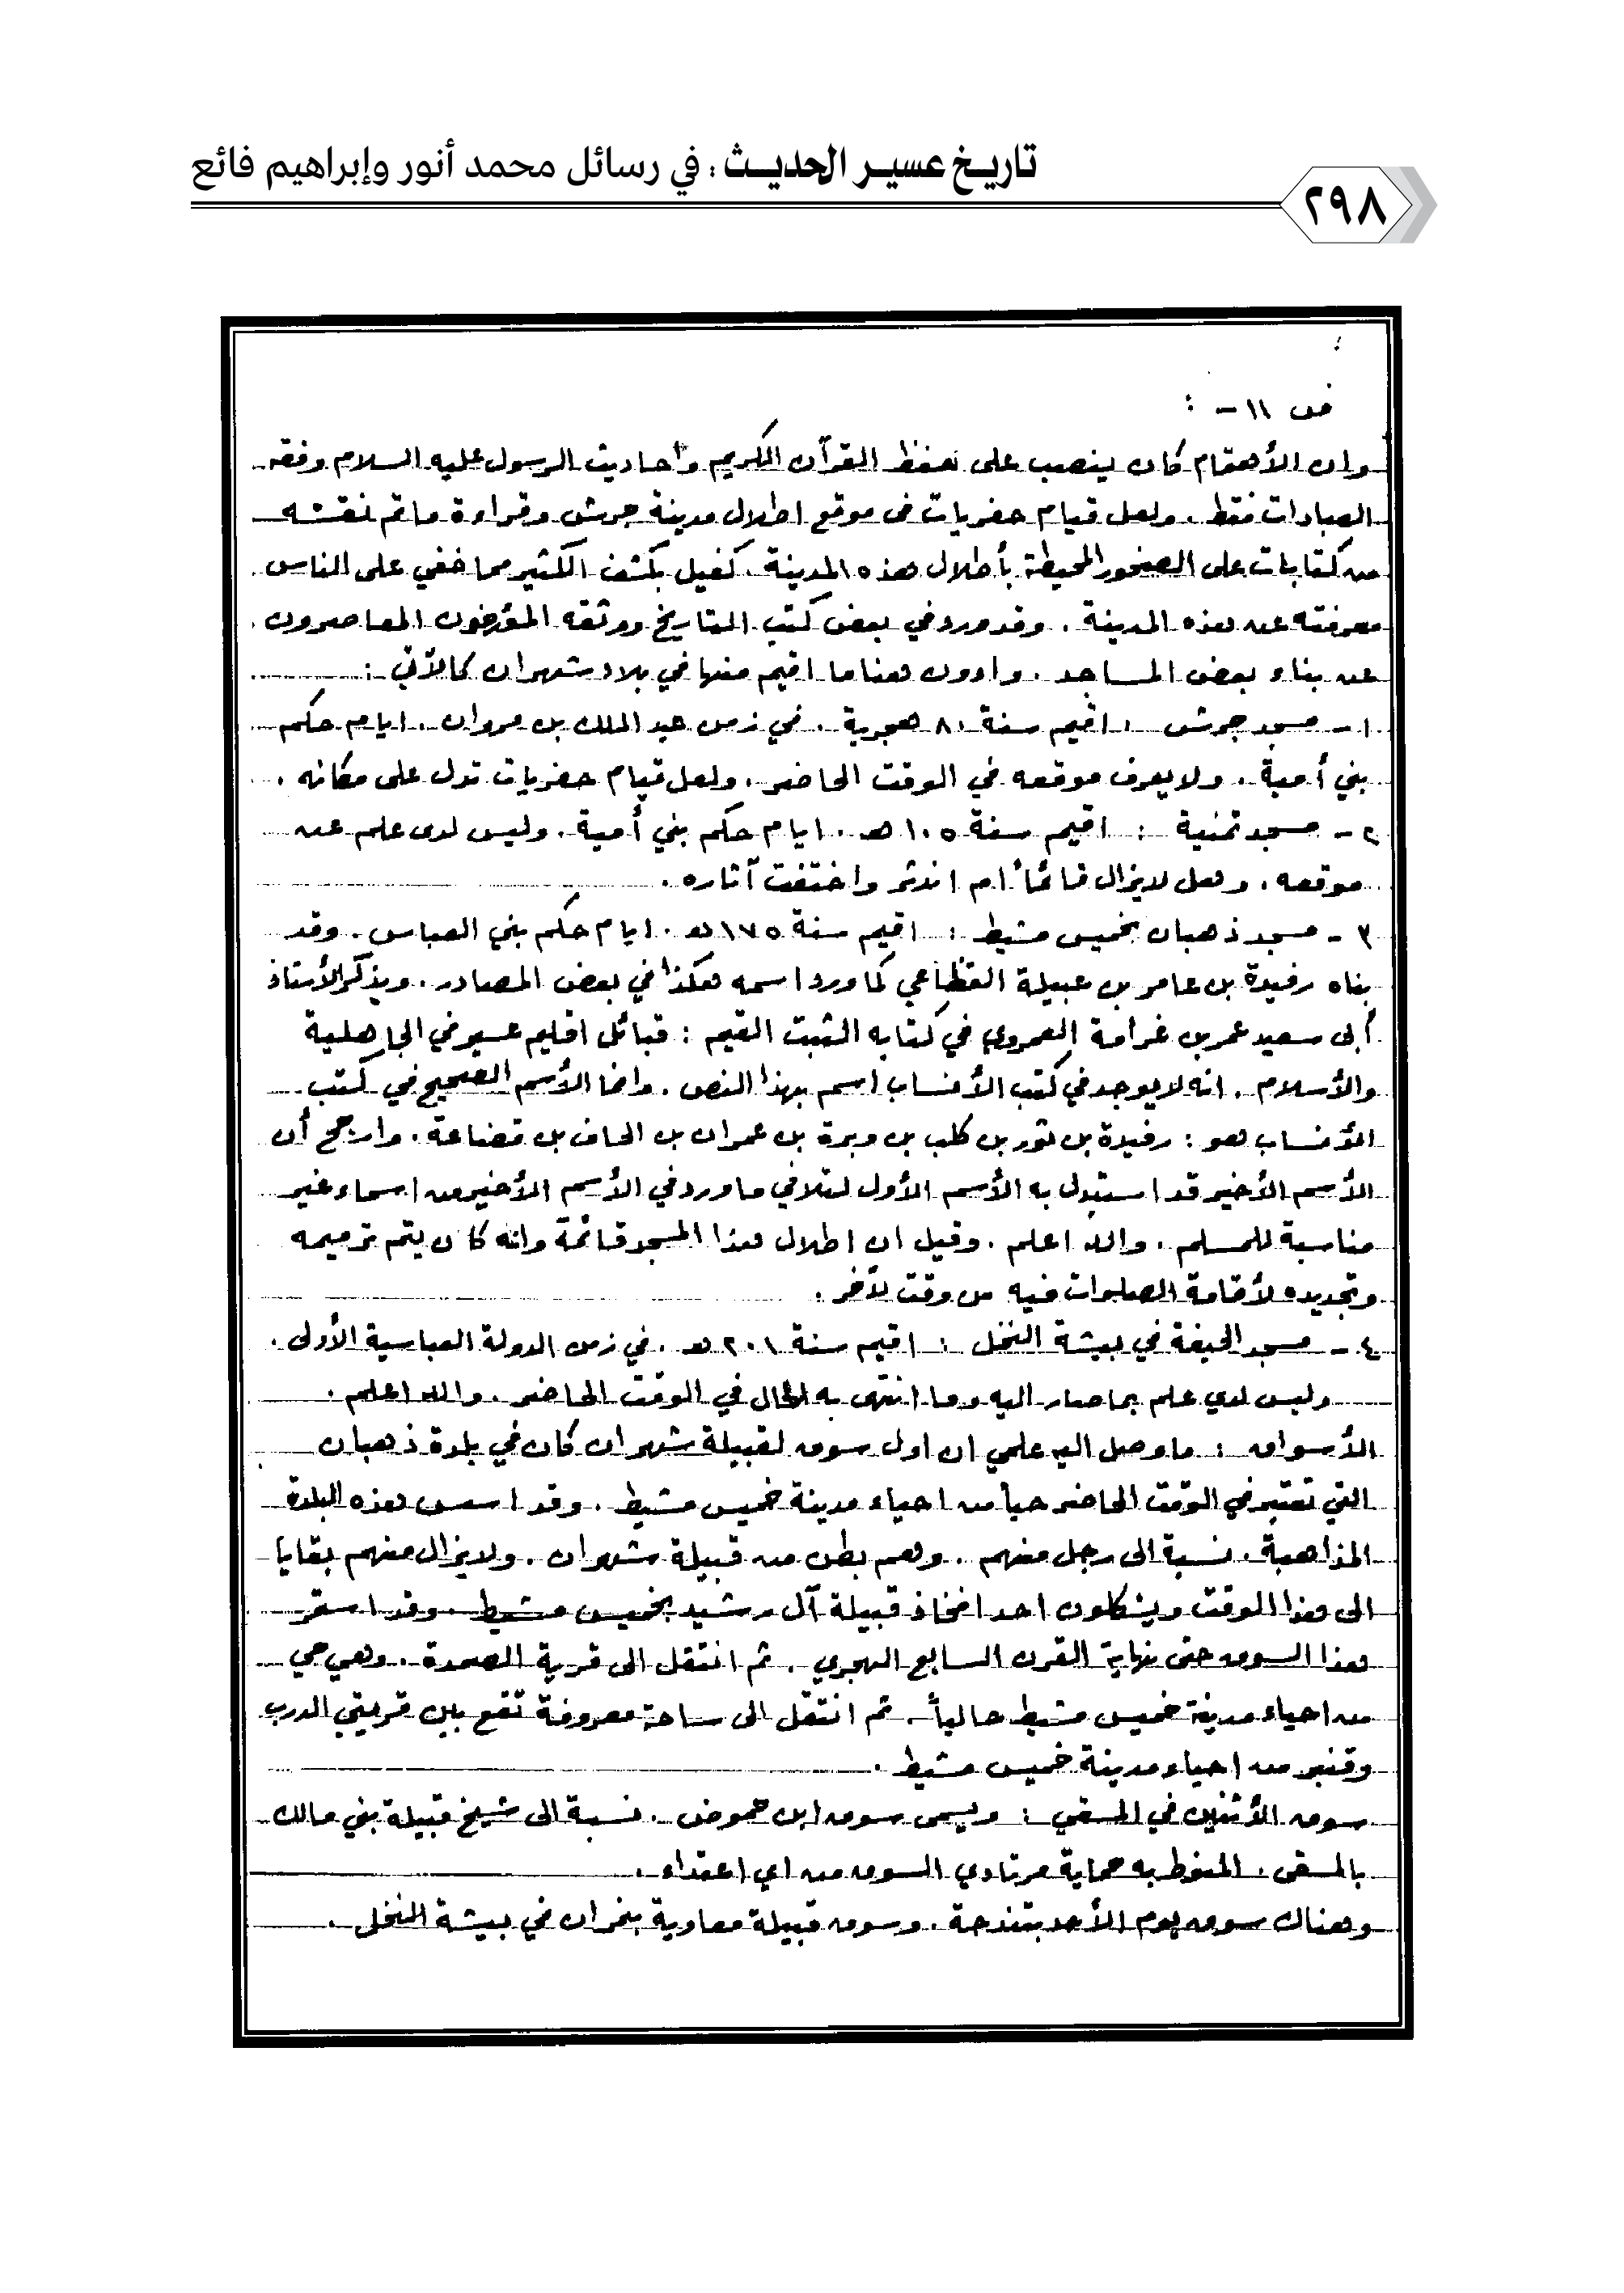 تاريخ عسير الحديث : في رسائل محمد أنور وإبراهيم فائع
٢٩٨
ص ١١ - :
وان الأهتمام كان ينصب على حفظ القرآن الكريم وأحاديث الرسول عليه السلام وفقه
العبادات فقط . ولعل قيام حفريات في موقع اطلال مدينة جرش وقراءة ما تم نقشه
من كتابات على الصخور المحيطة بأطلال هذه المدينة . كفيل بكشف الكثير مما خفي على الناس
معرفته عن هذه المدينة . وقد ورد في بعض كتب التاريخ ووثقه المؤرخون المعاصرون
عن بناء بعض المساجد . وادون هنا ما اقيم منها في بلاد شهران كالآتي :
١ - مسجد جرش : اقيم سنة ٨٠ هجرية . في زمن عبد الملك بن مروان . ايام حكم
بني أمية . ولا يعرف موقعه في الوقت الحاضر . ولعل قيام حفريات تدل على مكانه .
٢ - مسجد تمنية : اقيم سنة ١٠٥ هـ . ايام حكم بني أمية . وليس لدى علم عن
موقعه . وهل لا يزال قائماً أم اندثر واختفت آثاره .
٣ - مسجد ذهبان بخميس مشيط : اقيم سنة ١٧٥ هـ . ايام حكم بني العباس . وقد
بناه رفيدة بن عامر بن عبيلة القظاعي كما ورد اسمه هكذا في بعض المصادر . ويذكر الأستاذ
أبى سعيد عمر بن غرامة العمروي في كتابه الثبت القيم : قبائل اقليم عسير في الجاهلية
والأسلام . انه لا يوجد في كتب الأنساب اسم بهذا النص . وانما الأسم الصحيح في كتب
الأنساب هو : رفيدة بن ثور بن كلب بن وبرة بن عمران بن الحاف بن قضاعة . وارجح أن
الأسم الأخير قد استبدل به الأسم الأول لتلافي ما ورد في الأسم الأخير من اسماء غير
مناسبة للمسلم . والله اعلم . وقيل ان اطلال هذا المسجد قائمة وانه كان يتم ترميمه
وتجديده لأقامة الصلوات فيه من وقت لآخر .
٤ - مسجد الحيفة في بيشة النخل : اقيم سنة ٢٠١ هـ . في زمن الدولة العباسية الأولى .
وليس لدي علم بما صار اليه وما انتهى به الحال في الوقت الحاضر . والله اعلم .
الأسواق : ما وصل اليه علمي ان اول سوق لقبيلة شهران كان في بلدة ذهبان
التي تعتبر في الوقت الحاضر حياً من احياء مدينة خميس مشيط . وقد اسس هذه البلدة
المذاهبة . نسبة الى رجل منهم . وهم بطن من قبيلة شهران . ولا يزال منهم بقايا
الى هذا الوقت ويشكلون احد افخاذ قبيلة آل رشيد بخميس مشيط . وقد استمر
هذا السوق حتى نهاية القرن السابع الهجري . ثم انتقل الى قرية الصمدة . وهي حي
من احياء مدينة خميس مشيط حالياً . ثم انتقل الى ساحة معروفة تقع بين قريتي الدرب
وقنبر من احياء مدينة خميس مشيط .
سوق الأثنين في المسقي : ويسمى سوق ابن حموض . نسبة الى شيخ قبيلة بني مالك
بالمسقى . المنوط به حماية مرتادي السوق من اي اعتداء .
وهناك سوق يوم الأحد بتندحة . وسوق قبيلة معاوية بنمران في بيشة النخل .